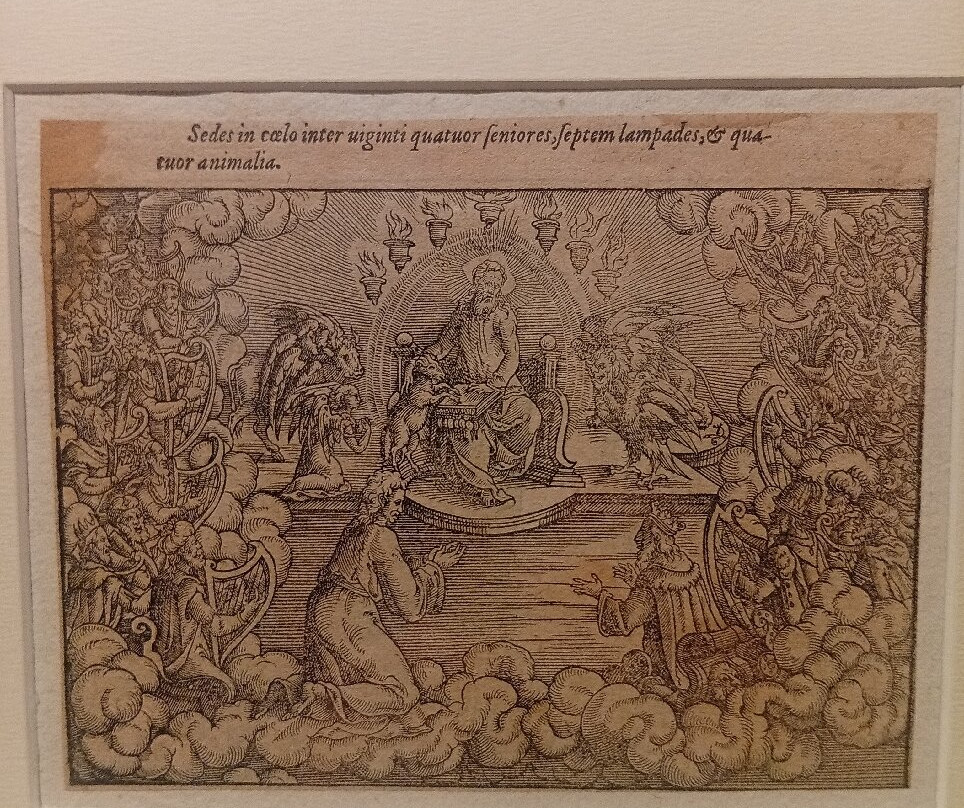 Sedes in cœlo inter uiginti quatuor ſeniores, ſeptem lampades, & qua-
tuor animalia.